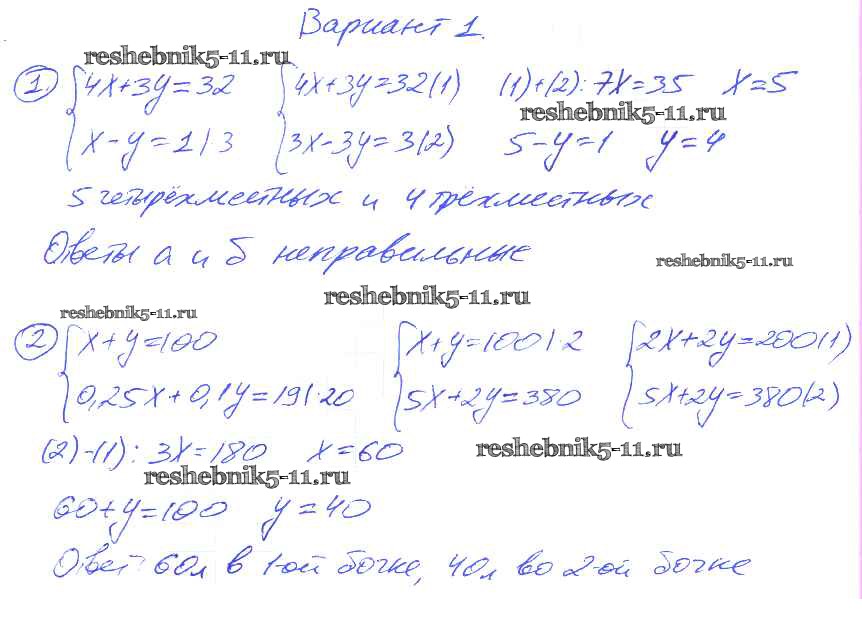 Вариант 1.
reshebnik5-11.ru
1 4x+3y=32 4x+3y=32(1) (1)+(2): 7x=35 x=5
reshebnik5-11.ru
x-y=1 | 3 3x-3y=3(2) 5-y=1 y=4
5 четырёхместных и 4 трёхместных
Ответы а и б неправильные
reshebnik5-11.ru
reshebnik5-11.ru
reshebnik5-11.ru
2 x+y=100 x+y=100 | 2 2x+2y=200(1)
0,25x+0,1y=19 | ·20 5x+2y=380 5x+2y=380(2)
(2)-(1): 3x=180 x=60
reshebnik5-11.ru
reshebnik5-11.ru
60+y=100 y=40
Ответ: 60л в 1-ой бочке, 40л во 2-ой бочке